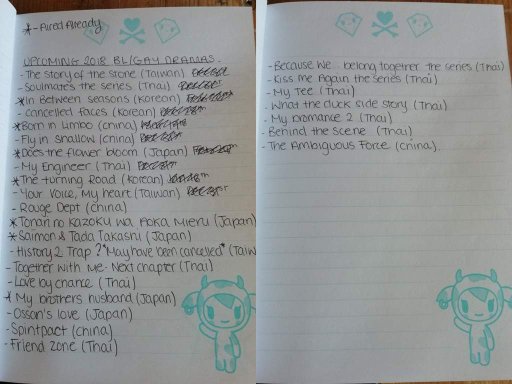 * - Aired Already
UPCOMING 2018 BL/GAY DRAMAS.
- The story of the stone (Taiwan)
- Soulmates the series (Thai)
* In Between seasons (Korean)
- cancelled faces (Korean)
* Born in Limbo (China)
- Fly in Shallow (China)
* Does the flower bloom (Japan)
- My Engineer (Thai)
* The turning Road (Korean)
- Your Voice, My heart (Taiwan)
- Rouge Dept (China)
* Tonari no Kazoku wa Aoka Mieru (Japan)
* Saimon & Tada Takashi (Japan)
- History 2 Trap ? *May have been cancelled* (Taiw
- Together with me- Next chapter (Thai)
- Love by chance (Thai)
* My brothers husband (Japan)
- Ossan's love (Japan)
- Spiritpact (China)
- Friend zone (Thai)
- Because We belong together the series (Thai)
- Kiss me Again the series (Thai)
- My Tee (Thai)
- What the duck side story (Thai)
- My bromance 2 (Thai)
- Behind the scene (Thai)
- The Ambiguous Force (China).